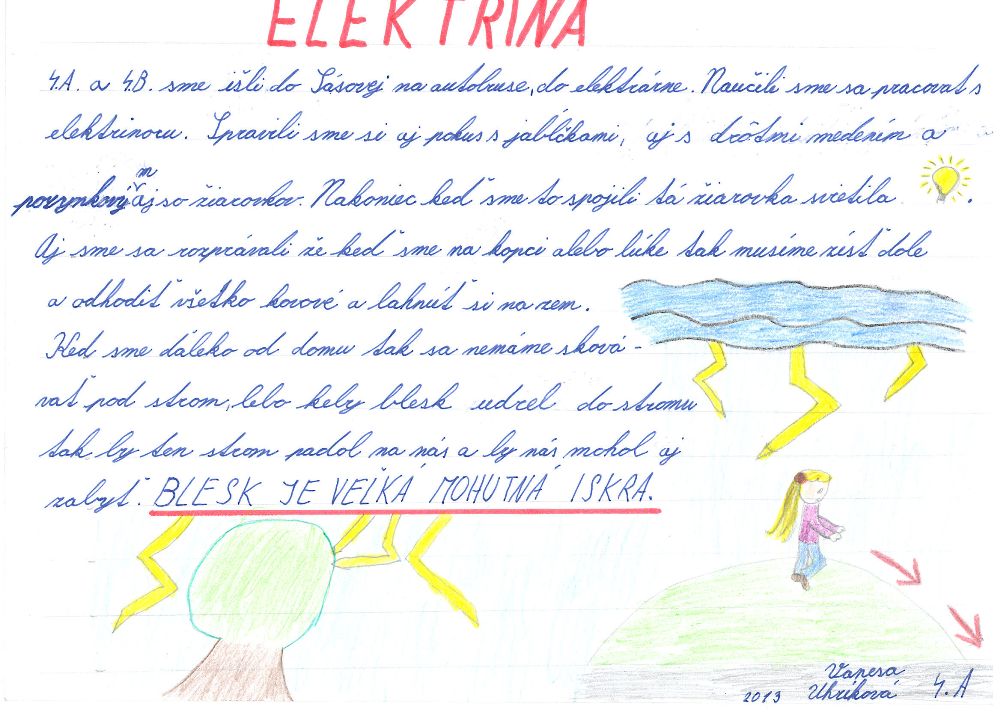 ELEKTRINA
4.A. a 4.B. sme išli do Sásovej na autobuse, do elektrárne. Naučili sme sa pracovať s
elektrinou. Spravili sme si aj pokus s jablčkami, aj s drôtmi medením a
pozinkovým aj so žiarovkov. Nakoniec keď sme to spojili tá žiarovka svietila .
Aj sme sa rozprávali že keď sme na kopci alebo lúke tak musíme zísť dole
a odhodiť všetko kovové a lahnúť si na zem.
Keď sme ďáleko od domu tak sa nemáme sková-
vať pod strom, lebo keby blesk udrel do stromu
tak by ten strom padol na nás a by nás mohol aj
zabyť. BLESK JE VEĽKÁ MOHUTNÁ ISKRA.
Vanesa
2013 Uhríková 4.A